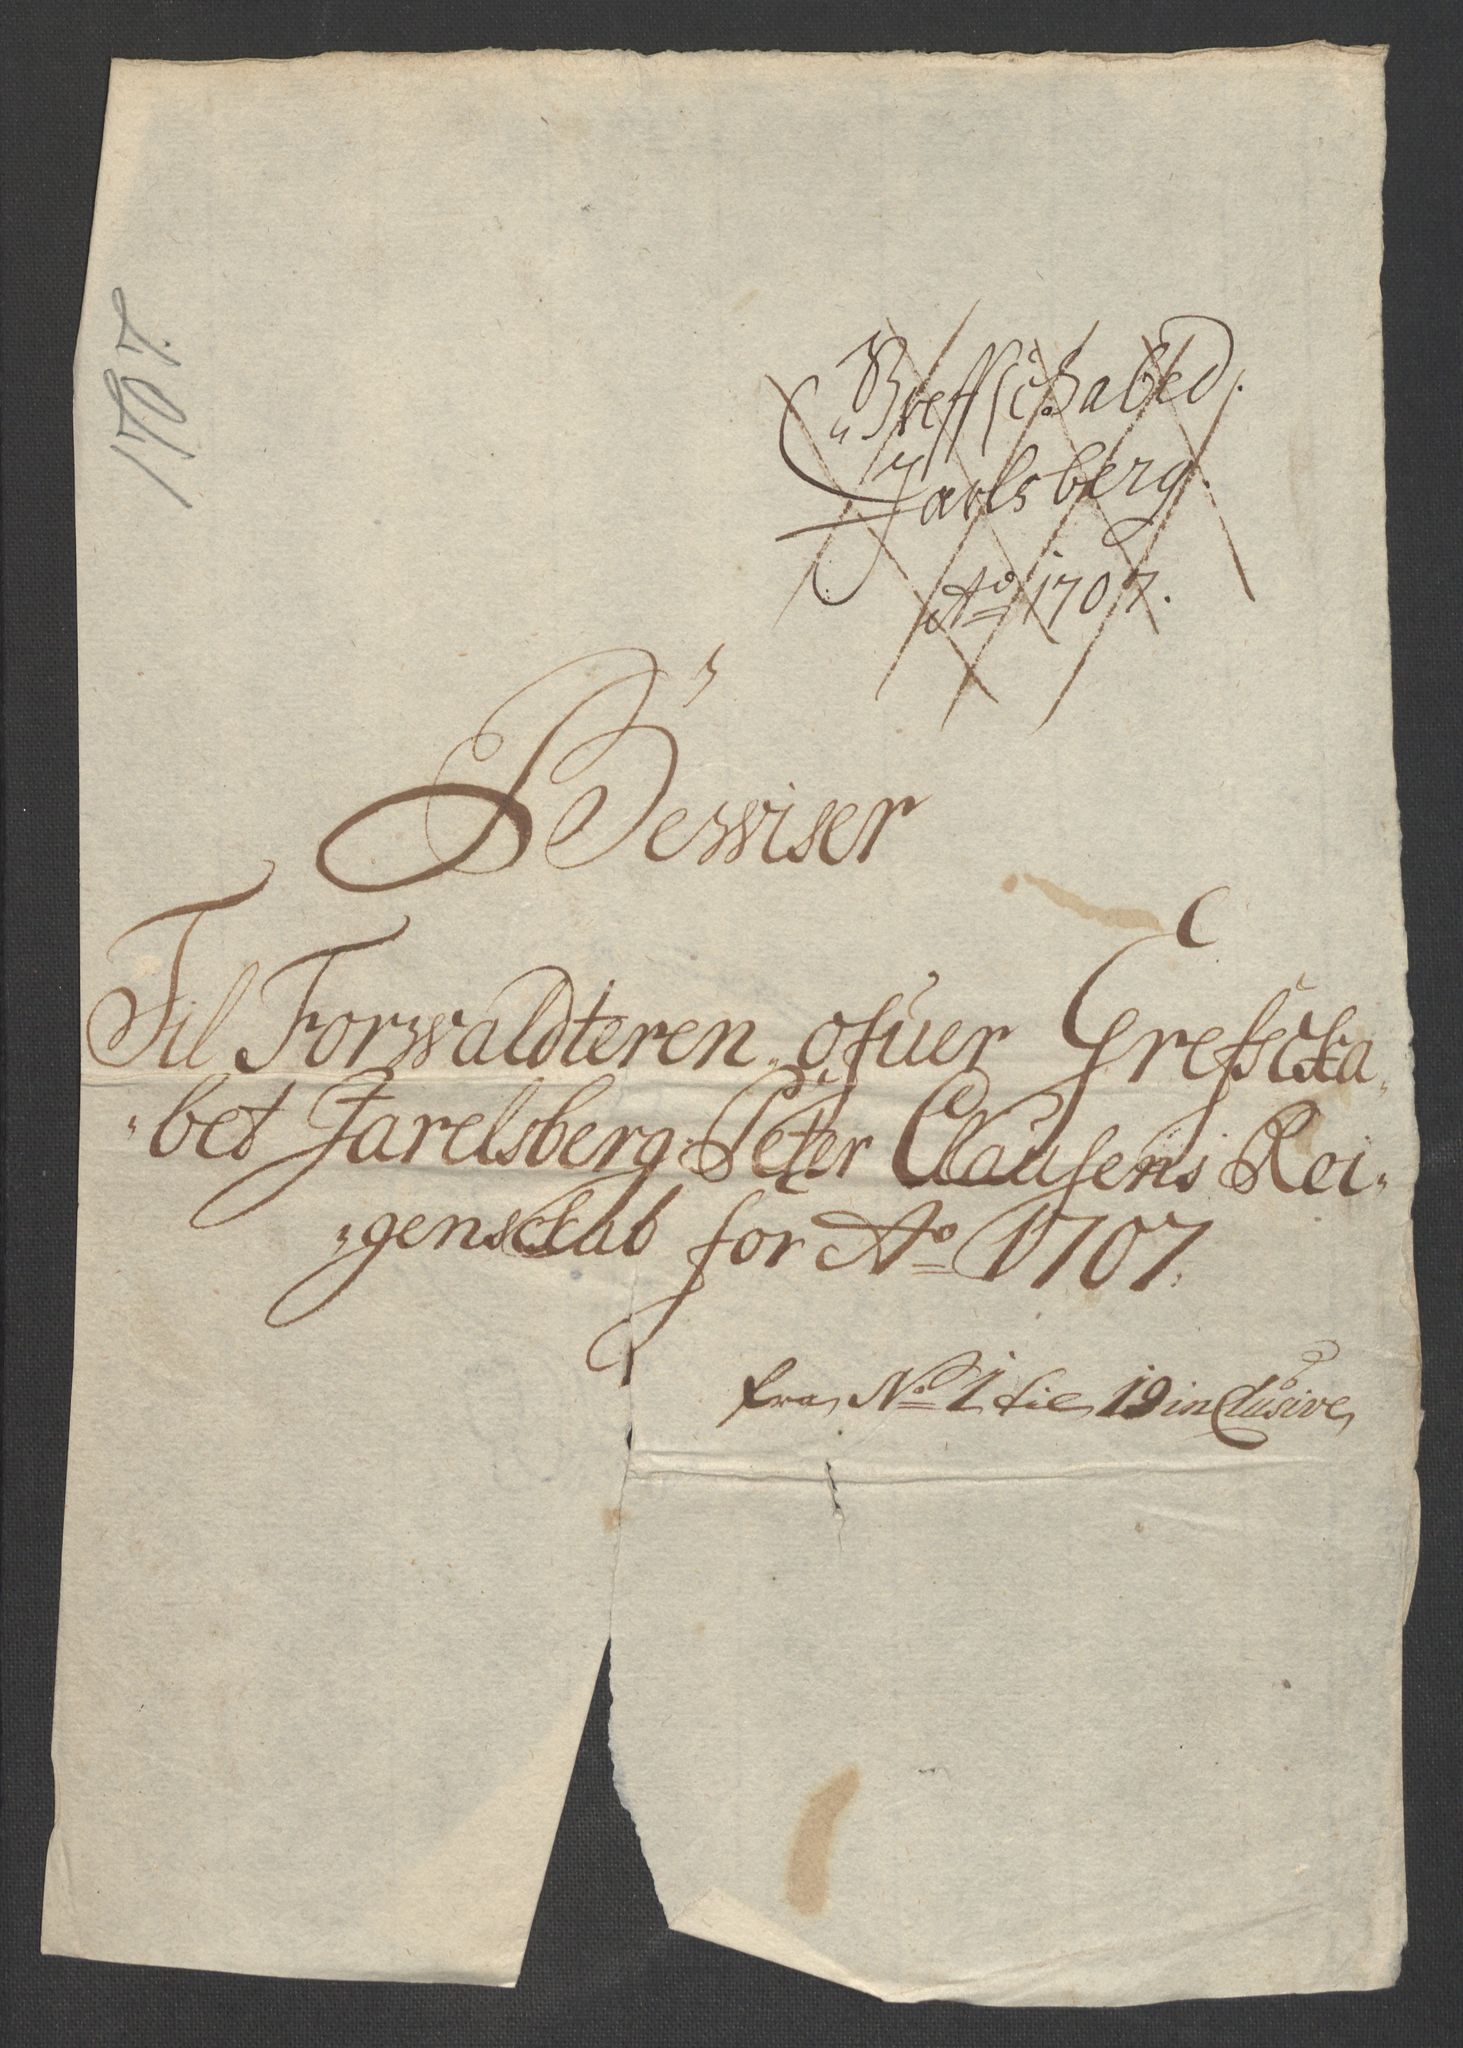 1707.
Greffschabed.
Jarlsberg.
Ao 1707.
Bewiser
Til Forwaldteren ofuer Grefscka-
-bet Jarelsberg Peter Clausens Rei-
-genschab for Ao 1707.
fra No 1 til 19 inclusive